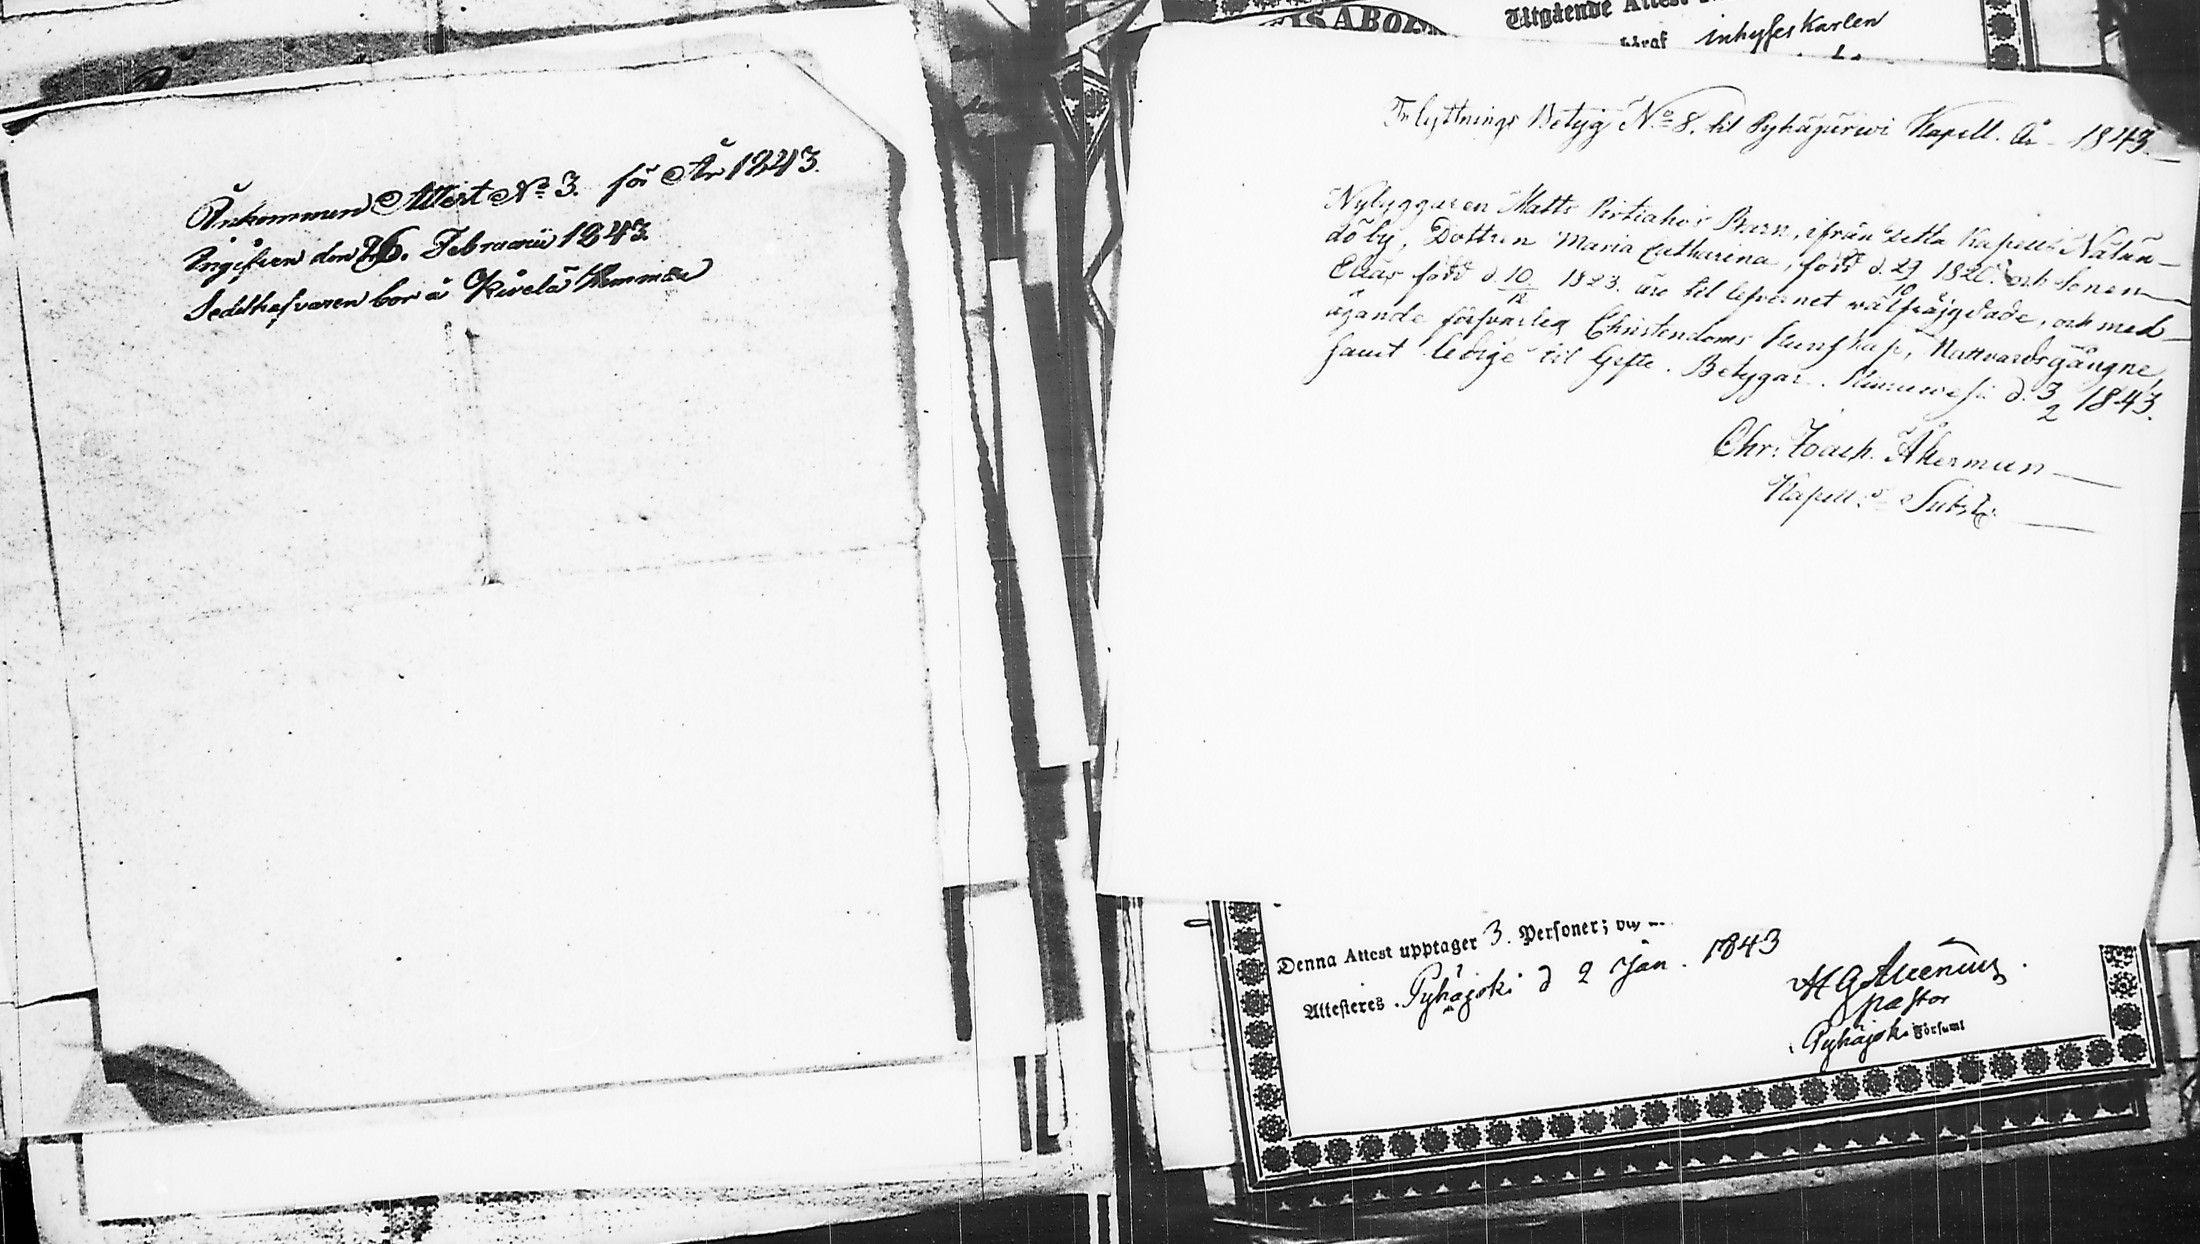 Ankommen Attest No 3. för År 1843.
Ingifven den 26. Februarii 1843
Sedelhafvaren bor å Kivelä Hemman
ABO
Utgående Attest
inhyses karlen
Inflyttnings Betyg No 8. til Pyhäjärwi Kapell. År 1843.
Nybyggaren Matts Pirtiahos Barn, ifrån detta Kapells
by, Dottren Maria Catharina, född d. 29/10 182 och Sonen
Elias född d. 10/12 1823. äro til lefvernet wälfräjgdade, och med
ägande försvarlig Christendoms Kunskap, Nattvardsgångne,
samt ledige til Gifte. Betygar. d. 3/2 1843.
Chr: Joach. Åkerman
Kapell:s Subst:
Denna Attest upptager 3. Personer;
Attesteres. Pyhäjoki d 2 Jan. 1843
pastor
Pyhäjoki Församl